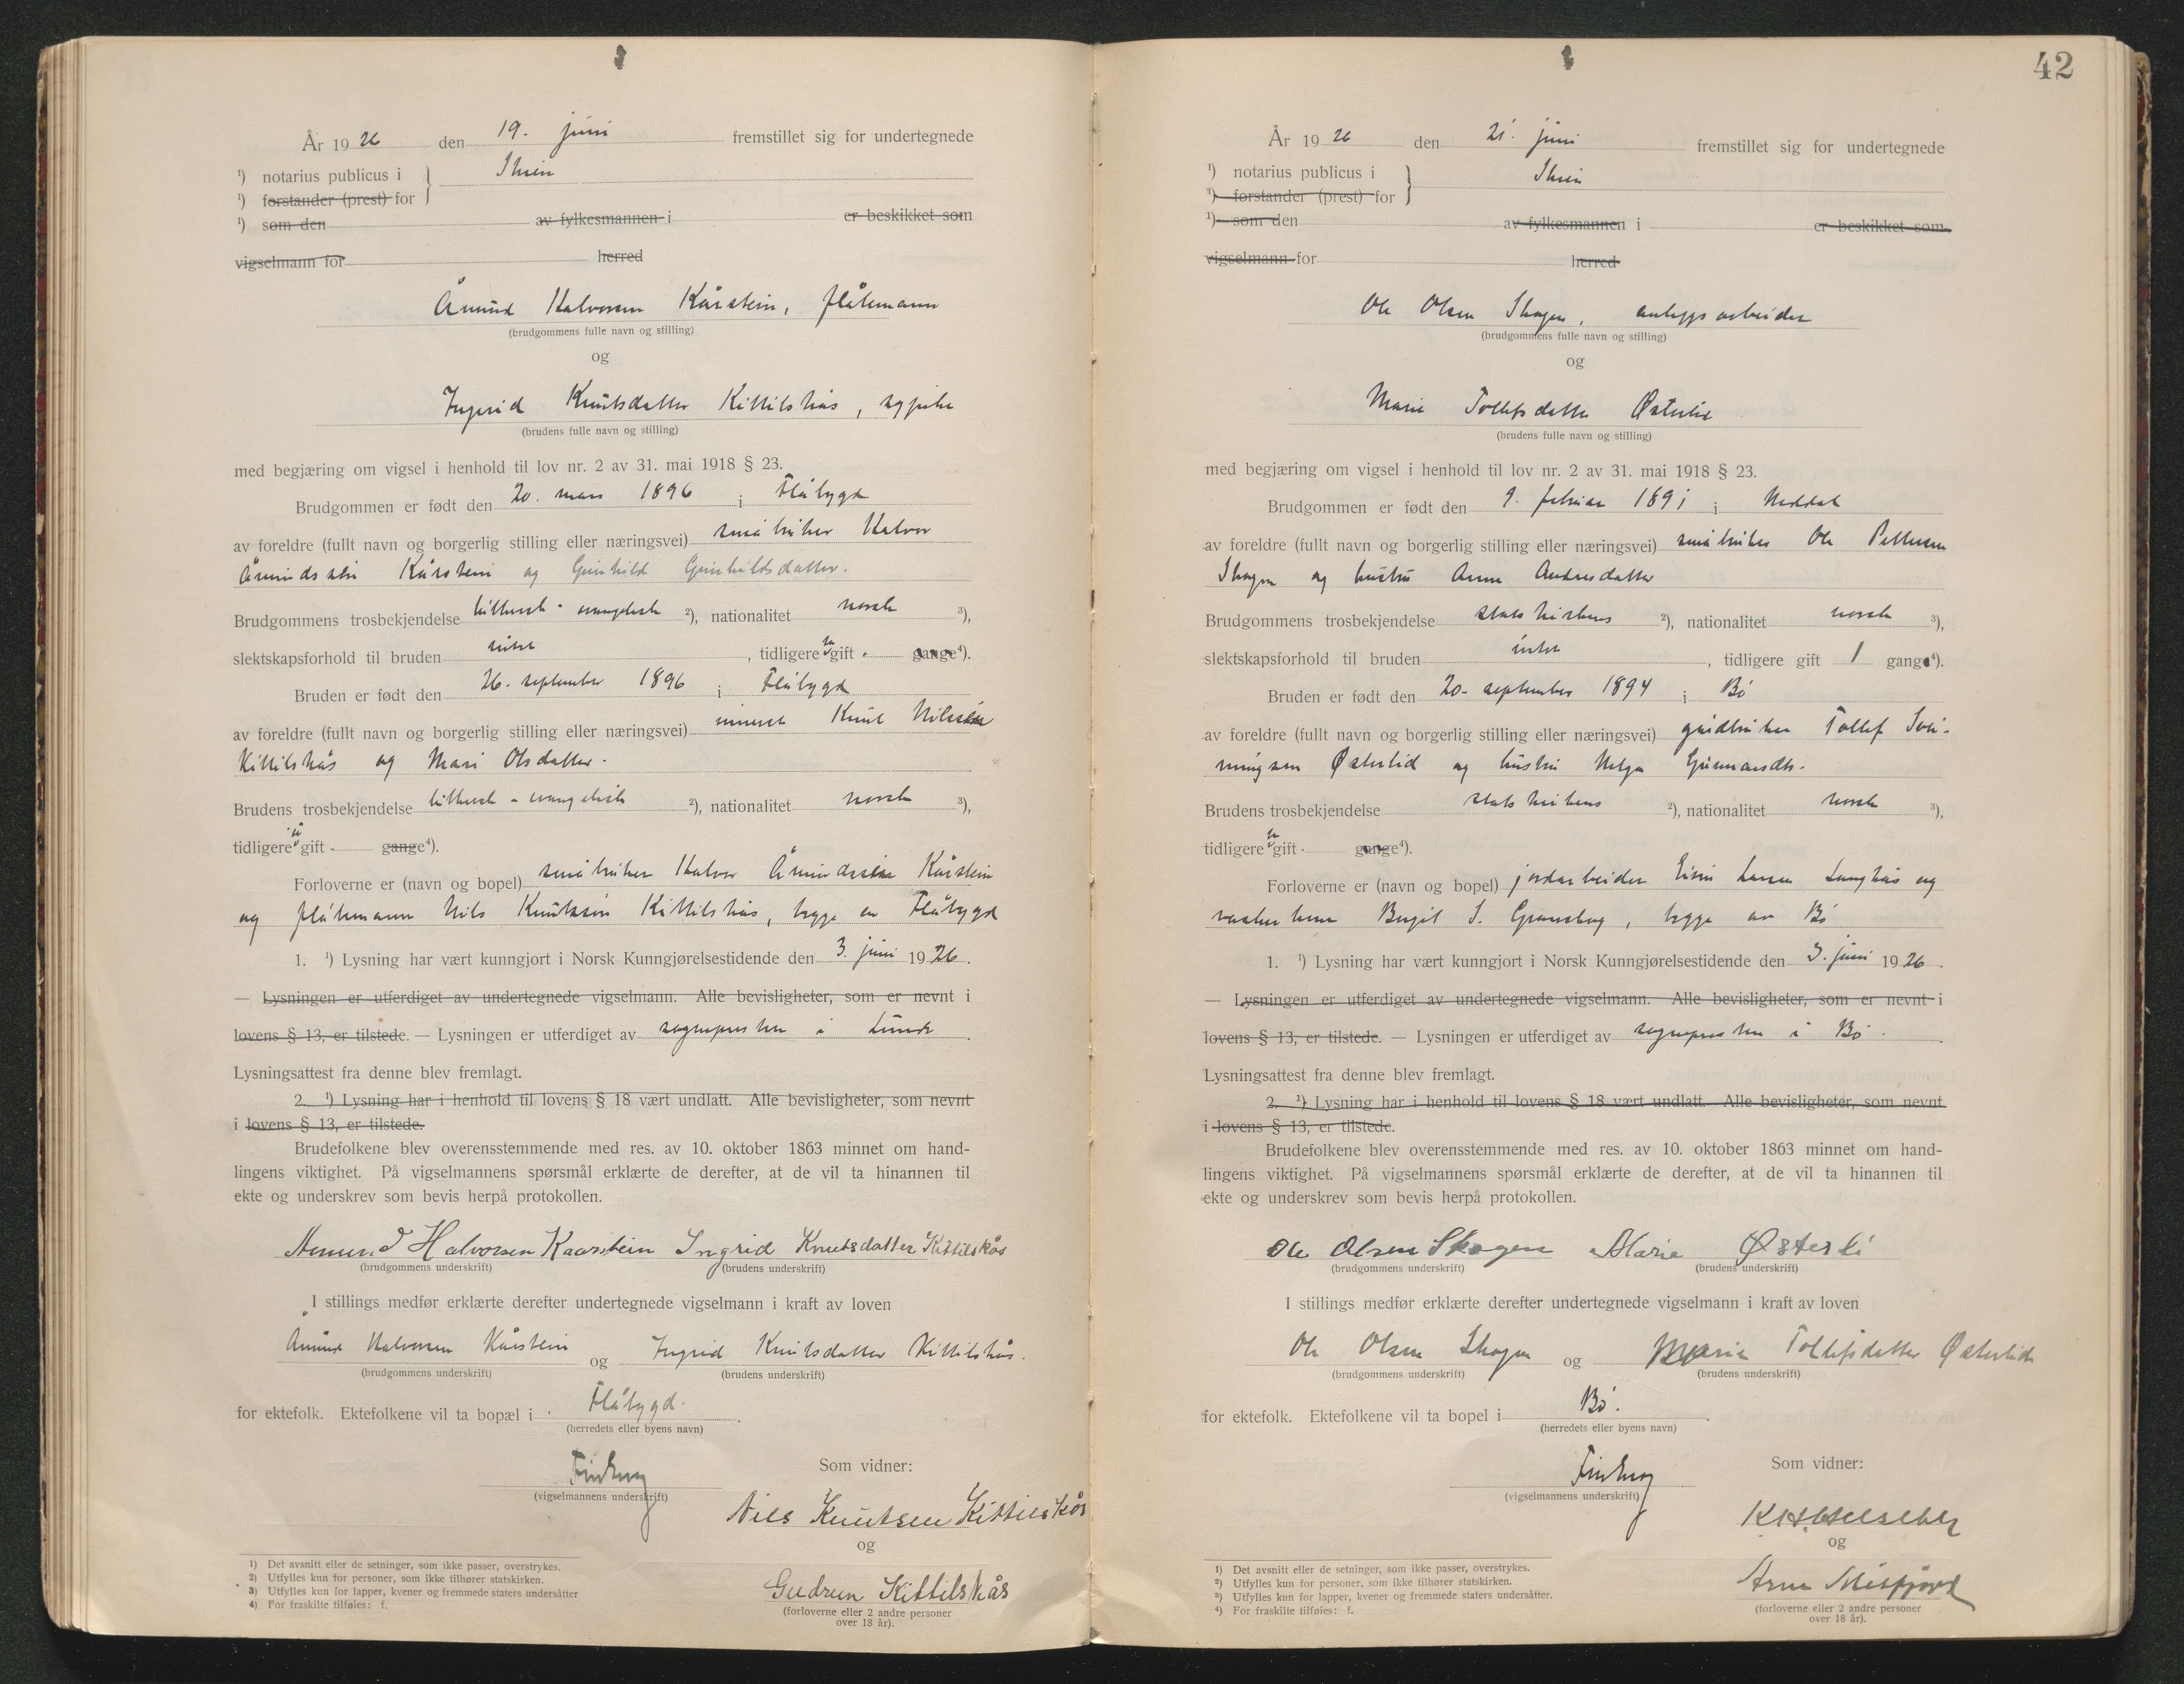 År 1926 den 19. juni fremstillet sig for undertegnede
1) notarius publicus i Skien
1) forstander (prest) for
1) som den av fylkesmannen i er beskikket som
vigselmann for herred
Åmund Halvorsen Kårstein, flåtemann
(brudgommens fulle navn og stilling)
og
Ingrid Knutsdatter Kittilskås, sypike
(brudens fulle navn og stilling)
med begjæring om vigsel i henhold til lov nr. 2 av 31. mai 1918 § 23.
Brudgommen er født den 20. mars 1896 i Flåbygd
av foreldre (fullt navn og borgerlig stilling eller næringsvei) småbruker Halvor
Åmundssøn Kårstein og Gunhild Gunhildsdatter.
Brudgommens trosbekjendelse luthersk-evangelisk 2), nationalitet norsk 3),
slektskapsforhold til bruden intet, tidligere u gift - gange 4).
Bruden er født den 26. september 1896 i Flåbygd
av foreldre (fullt navn og borgerlig stilling eller næringsvei) Knut Nilssøn
Kittilskås og Mari Olsdatter.
Brudens trosbekjendelse luthersk-evangelisk 2), nationalitet norsk 3),
tidligere u gift - gange 4).
Forloverne er (navn og bopel) småbruker Halvor Åmundssøn Kårstein
og flåtemann Nils Knutssøn Kittilskås, begge av Flåbygd
1. 1) Lysning har vært kunngjort i Norsk Kunngjørelsestidende den 3. juni 1926.
— Lysningen er utferdiget av undertegnede vigselmann. Alle bevisligheter, som er nevnt i
lovens § 13, er tilstede. — Lysningen er utferdiget av sognepresten i Lunde.
Lysningsattest fra denne blev fremlagt.
2. 1) Lysning har i henhold til lovens § 18 vært undlatt. Alle bevisligheter, som nevnt
i lovens § 13, er tilstede.
Brudefolkene blev overensstemmende med res. av 10. oktober 1863 minnet om hand-
lingens viktighet. På vigselmannens spørsmål erklærte de derefter, at de vil ta hinannen til
ekte og underskrev som bevis herpå protokollen.
Aamund Halvorsen Kaarstein Ingrid Knutsdatter Kittilskås
(brudgommens underskrift) (brudens underskrift)
I stillings medfør erklærte derefter undertegnede vigselmann i kraft av loven
Åmund Halvorsen Kårstein og Ingrid Knutsdatter Kittilskås.
(brudgommens underskrift) (brudens underskrift)
for ektefolk. Ektefolkene vil ta bopæl i Flåbygd.
(herredets eller byens navn)
Som vidner:
(vigselmannens underskrift)
Nils Knutsen Kittilskås
og
Gudrun Kittilskås
(forloverne eller 2 andre personer
over 18 år).
1) Det avsnitt eller de setninger, som ikke passer, overstrykes.
2) Utfylles kun for personer, som ikke tilhører statskirken.
3) Utfylles kun for lapper, kvener og fremmede staters undersåtter
4) For fraskilte tilføies: f.
42
År 1926 den 21. juni fremstillet sig for undertegnede
1) notarius publicus i Skien
1) forstander (prest) for
1) som den av fylkesmannen i er beskikket som
vigselmann for herred
Ole Olsen Skogen, anleggsarbeider
(brudgommens fulle navn og stilling)
og
Marie Tollefsdatter Østerlid
(brudens fulle navn og stilling)
med begjæring om vigsel i henhold til lov nr. 2 av 31. mai 1918 § 23.
Brudgommen er født den 9. februar 1891 i Heddal
av foreldre (fullt navn og borgerlig stilling eller næringsvei) småbruker Ole Pettersen
Skogen og hustru Anne Andersdatter
Brudgommens trosbekjendelse statskirkens 2), nationalitet norsk 3),
slektskapsforhold til bruden intet, tidligere gift 1 gang 4).
Bruden er født den 20. september 1894 i Bø
av foreldre (fullt navn og borgerlig stilling eller næringsvei) gårdbruker Tollef Svei-
nungsen Østerlid og hustru Helga Gunnarsdtr.
Brudens trosbekjendelse statskirkens 2), nationalitet norsk 3),
tidligere u gift - gange 4).
Forloverne er (navn og bopel) jordarbeider Larsen Langkås og
Birgit S. Granskog, begge av Bø
1. 1) Lysning har vært kunngjort i Norsk Kunngjørelsestidende den 3. juni 1926.
— Lysningen er utferdiget av undertegnede vigselmann. Alle bevisligheter, som er nevnt i
lovens § 13, er tilstede. — Lysningen er utferdiget av sognepresten i Bø.
Lysningsattest fra denne blev fremlagt.
2. 1) Lysning har i henhold til lovens § 18 vært undlatt. Alle bevisligheter, som nevnt
i lovens § 13, er tilstede.
Brudefolkene blev overensstemmende med res. av 10. oktober 1863 minnet om hand-
lingens viktighet. På vigselmannens spørsmål erklærte de derefter, at de vil ta hinannen til
ekte og underskrev som bevis herpå protokollen.
Ole Olsen Skogen Marie Østerli
(brudgommens underskrift) (brudens underskrift)
I stillings medfør erklærte derefter undertegnede vigselmann i kraft av loven
Ole Olsen Skogen og Marie Tollefsdatter Østerlid
(brudgommens underskrift) (brudens underskrift)
for ektefolk. Ektefolkene vil ta bopel i Bø.
(herredets eller byens navn)
Som vidner:
(vigselmannens underskrift)
og
Arne
(forloverne eller 2 andre personer
over 18 år).
1) Det avsnitt eller de setninger, som ikke passer, overstrykes.
2) Utfylles kun for personer, som ikke tilhører statskirken.
3) Utfylles kun for lapper, kvener og fremmede staters undersåtter.
4) For fraskilte tilføies: f.